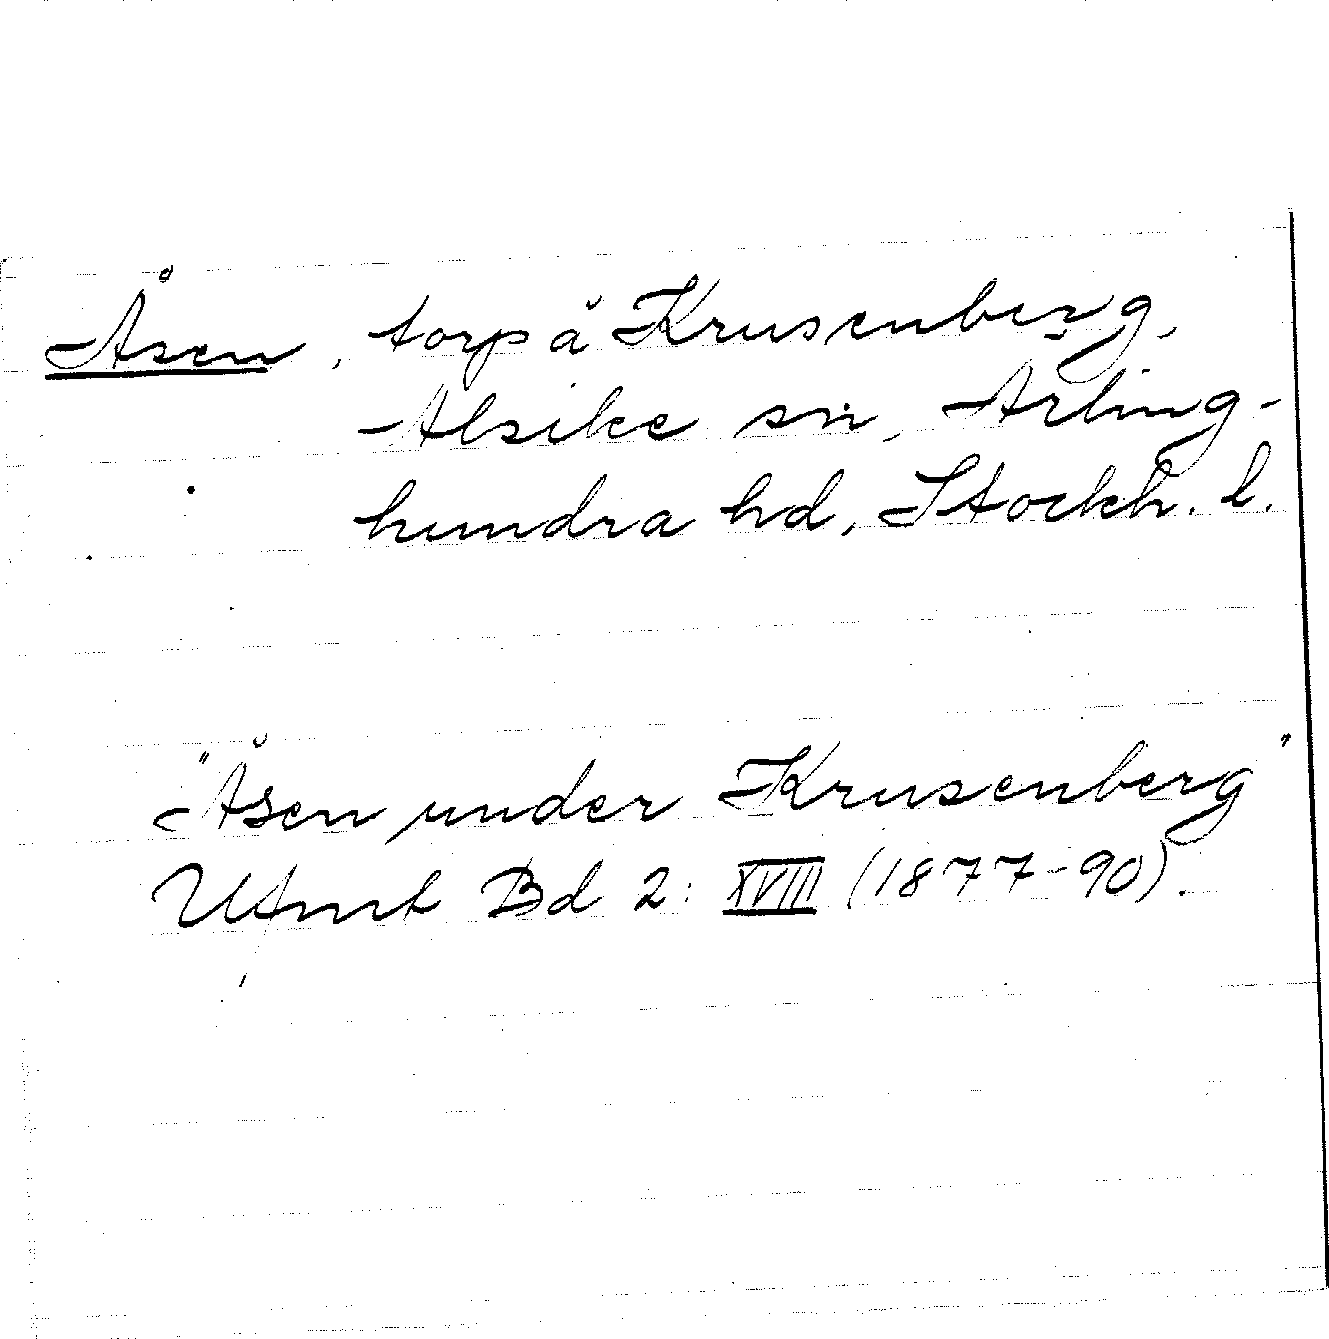 Åsen, torp å Krusenberg,
Alsike sn, Arling-
hundra hd, Stockh. l.
"Åsen under Krusenberg"
Utmt Bd 2: XVIII (1877-90).